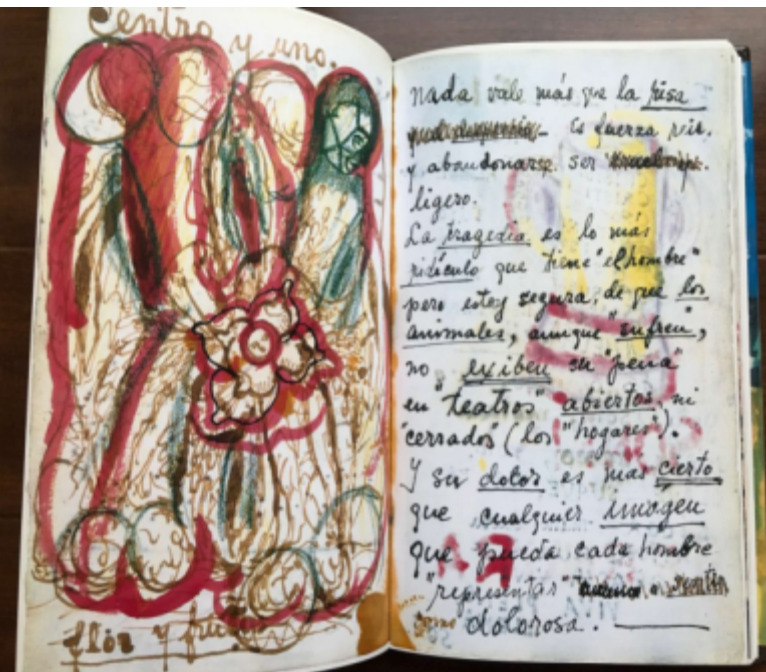 Centro y uno.
flor y fruto
Nada vale más que la risa
Es fuerza reir.
y abandonarse. ser
ligero.
La tragedia es lo más
ridículo que tiene "el hombre"
pero estoy segura, de que los
animales, aunque "sufren",
no exiben su "pena"
en "teatros" abiertos, ni
"cerrados" (los "hogares").
Y su dolor es mas cierto
que cualquier imagen
que pueda cada hombre
"representar"
como dolorosa.